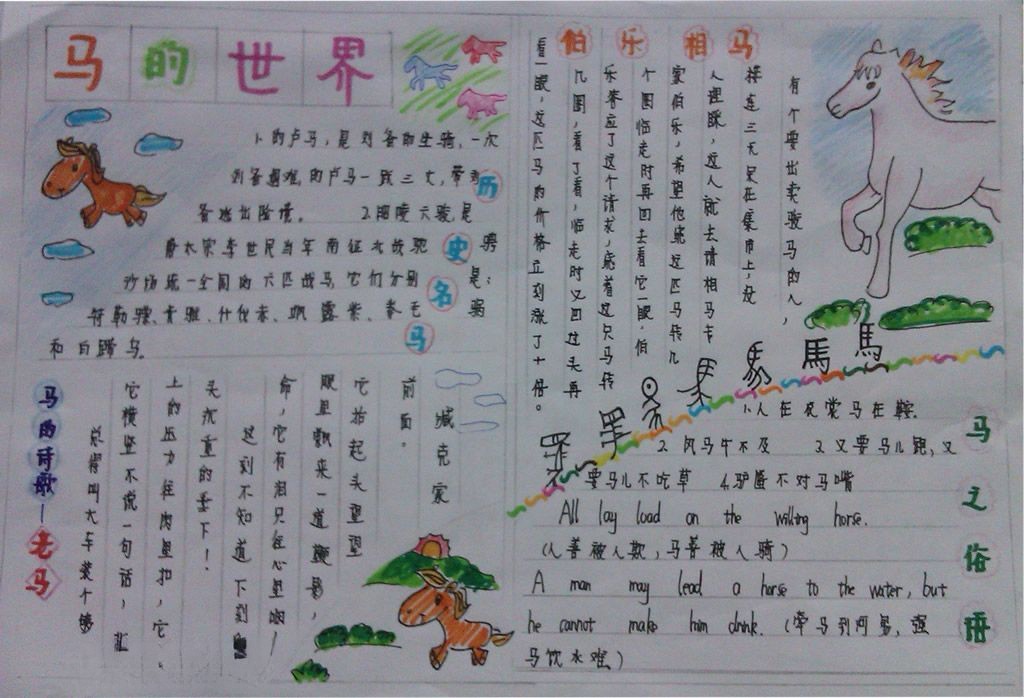 马的世界
历史名马
1.的卢马，是刘备的坐骑，一次
刘备遇难，的卢马一跃三丈，带刘
备逃出险境。 2.昭陵六骏是
唐太宗李世民当年南征北战驰骋
沙场统一全国的六匹战马，它们分别是：
特勒骠、青骓、什伐赤、飒露紫、拳毛䯄
和白蹄乌。
马的诗歌—老马
臧克家
总得叫大车装个够
它横竖不说一句话，背
上的压力往肉里扣，它
头沉重的垂下！
这刻不知道下刻的
命，它有泪只往心里咽，
眼里飘来一道鞭影，
它抬起头望望
前面。
伯乐相马
有个要出卖骏马的人，
接连三天呆在集市上，没
人理睬，这人就去请相马专
家伯乐，希望他绕这匹马转几
个圈，临走时再回去看它一眼，伯
乐答应了这个请求，绕着这只马转
几圈，看了看，临走时又回过头再
看一眼，这匹马的价格立刻涨了十倍。
馬
馬
马之俗语
1.人在衣裳马在鞍.
2.风马牛不及 3.又要马儿跑，又
要马儿不吃草 4.驴唇不对马嘴
All lay load on the willing horse.
(人善被人欺，马善被人骑)
A man may lead a horse to the water, but
he cannot make him drink. (牵马到河易，强
马饮水难)